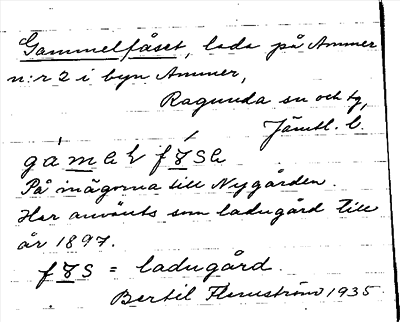 Gammelfåset, lada på Ammer
n:r 2 i byn Ammer,
Ragunda sn och tg,
Jämtl. l.
På inägorna till Nygården.
Har använts som ladugård till
år 1897.
= ladugård.
Bertil Flemström 1935